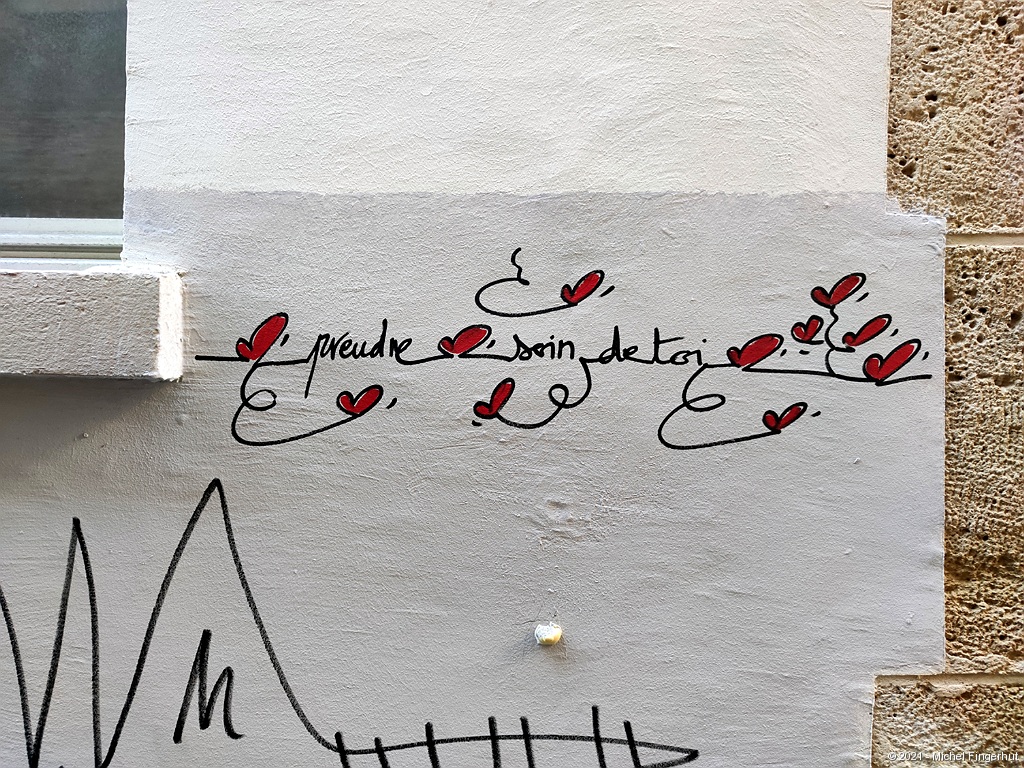 prendre soin de toi
© 2021 - Michel Fingerhut